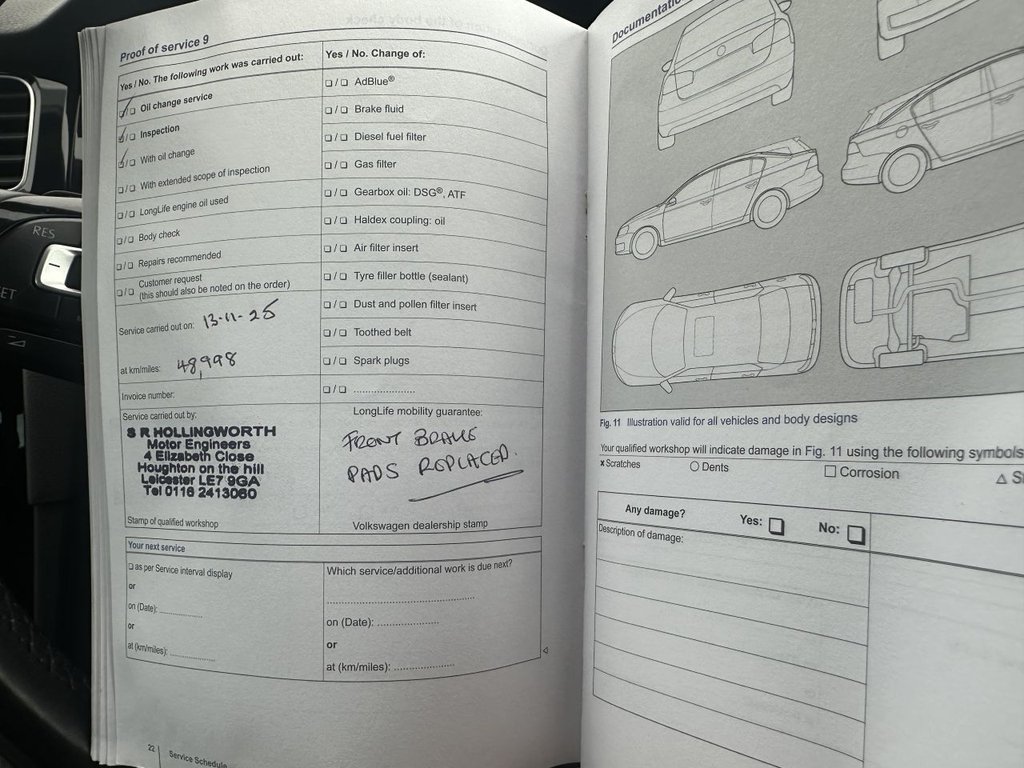 Proof of service 9
Yes / No. The following work was carried out:
☑/☐ Oil change service
☑/☐ Inspection
☑/☐ With oil change
☐/☐ With extended scope of inspection
☐/☐ LongLife engine oil used
☐/☐ Body check
☐/☐ Repairs recommended
☐/☐ Customer request
(this should also be noted on the order)
Service carried out on: 13-11-25
at km/miles: 48,998
Invoice number:
Service carried out by:
S R HOLLINGWORTH
Motor Engineers
4 Elizabeth Close
Houghton on the hill
Leicester LE7 9GA
Tel 0116 2413060
Stamp of qualified workshop
Yes / No. Change of:
☐/☐ AdBlue®
☐/☐ Brake fluid
☐/☐ Diesel fuel filter
☐/☐ Gas filter
☐/☐ Gearbox oil: DSG®, ATF
☐/☐ Haldex coupling: oil
☐/☐ Air filter insert
☐/☐ Tyre filler bottle (sealant)
☐/☐ Dust and pollen filter insert
☐/☐ Toothed belt
☐/☐ Spark plugs
☐/☐ ....................
LongLife mobility guarantee:
FRONT BRAKE
PADS REPLACED.
Volkswagen dealership stamp
Your next service
☐ as per Service interval display
or
on (Date): ..............
or
at (km/miles): ..............
Which service/additional work is due next?
..................................................
on (Date): ....................
or
at (km/miles): ....................
22 | Service Schedule
Documentation
Fig. 11 Illustration valid for all vehicles and body designs
Your qualified workshop will indicate damage in Fig. 11 using the following symbols
x Scratches
○ Dents
☐ Corrosion
Any damage?
Yes: ☐
No: ☐
Description of damage:
RES